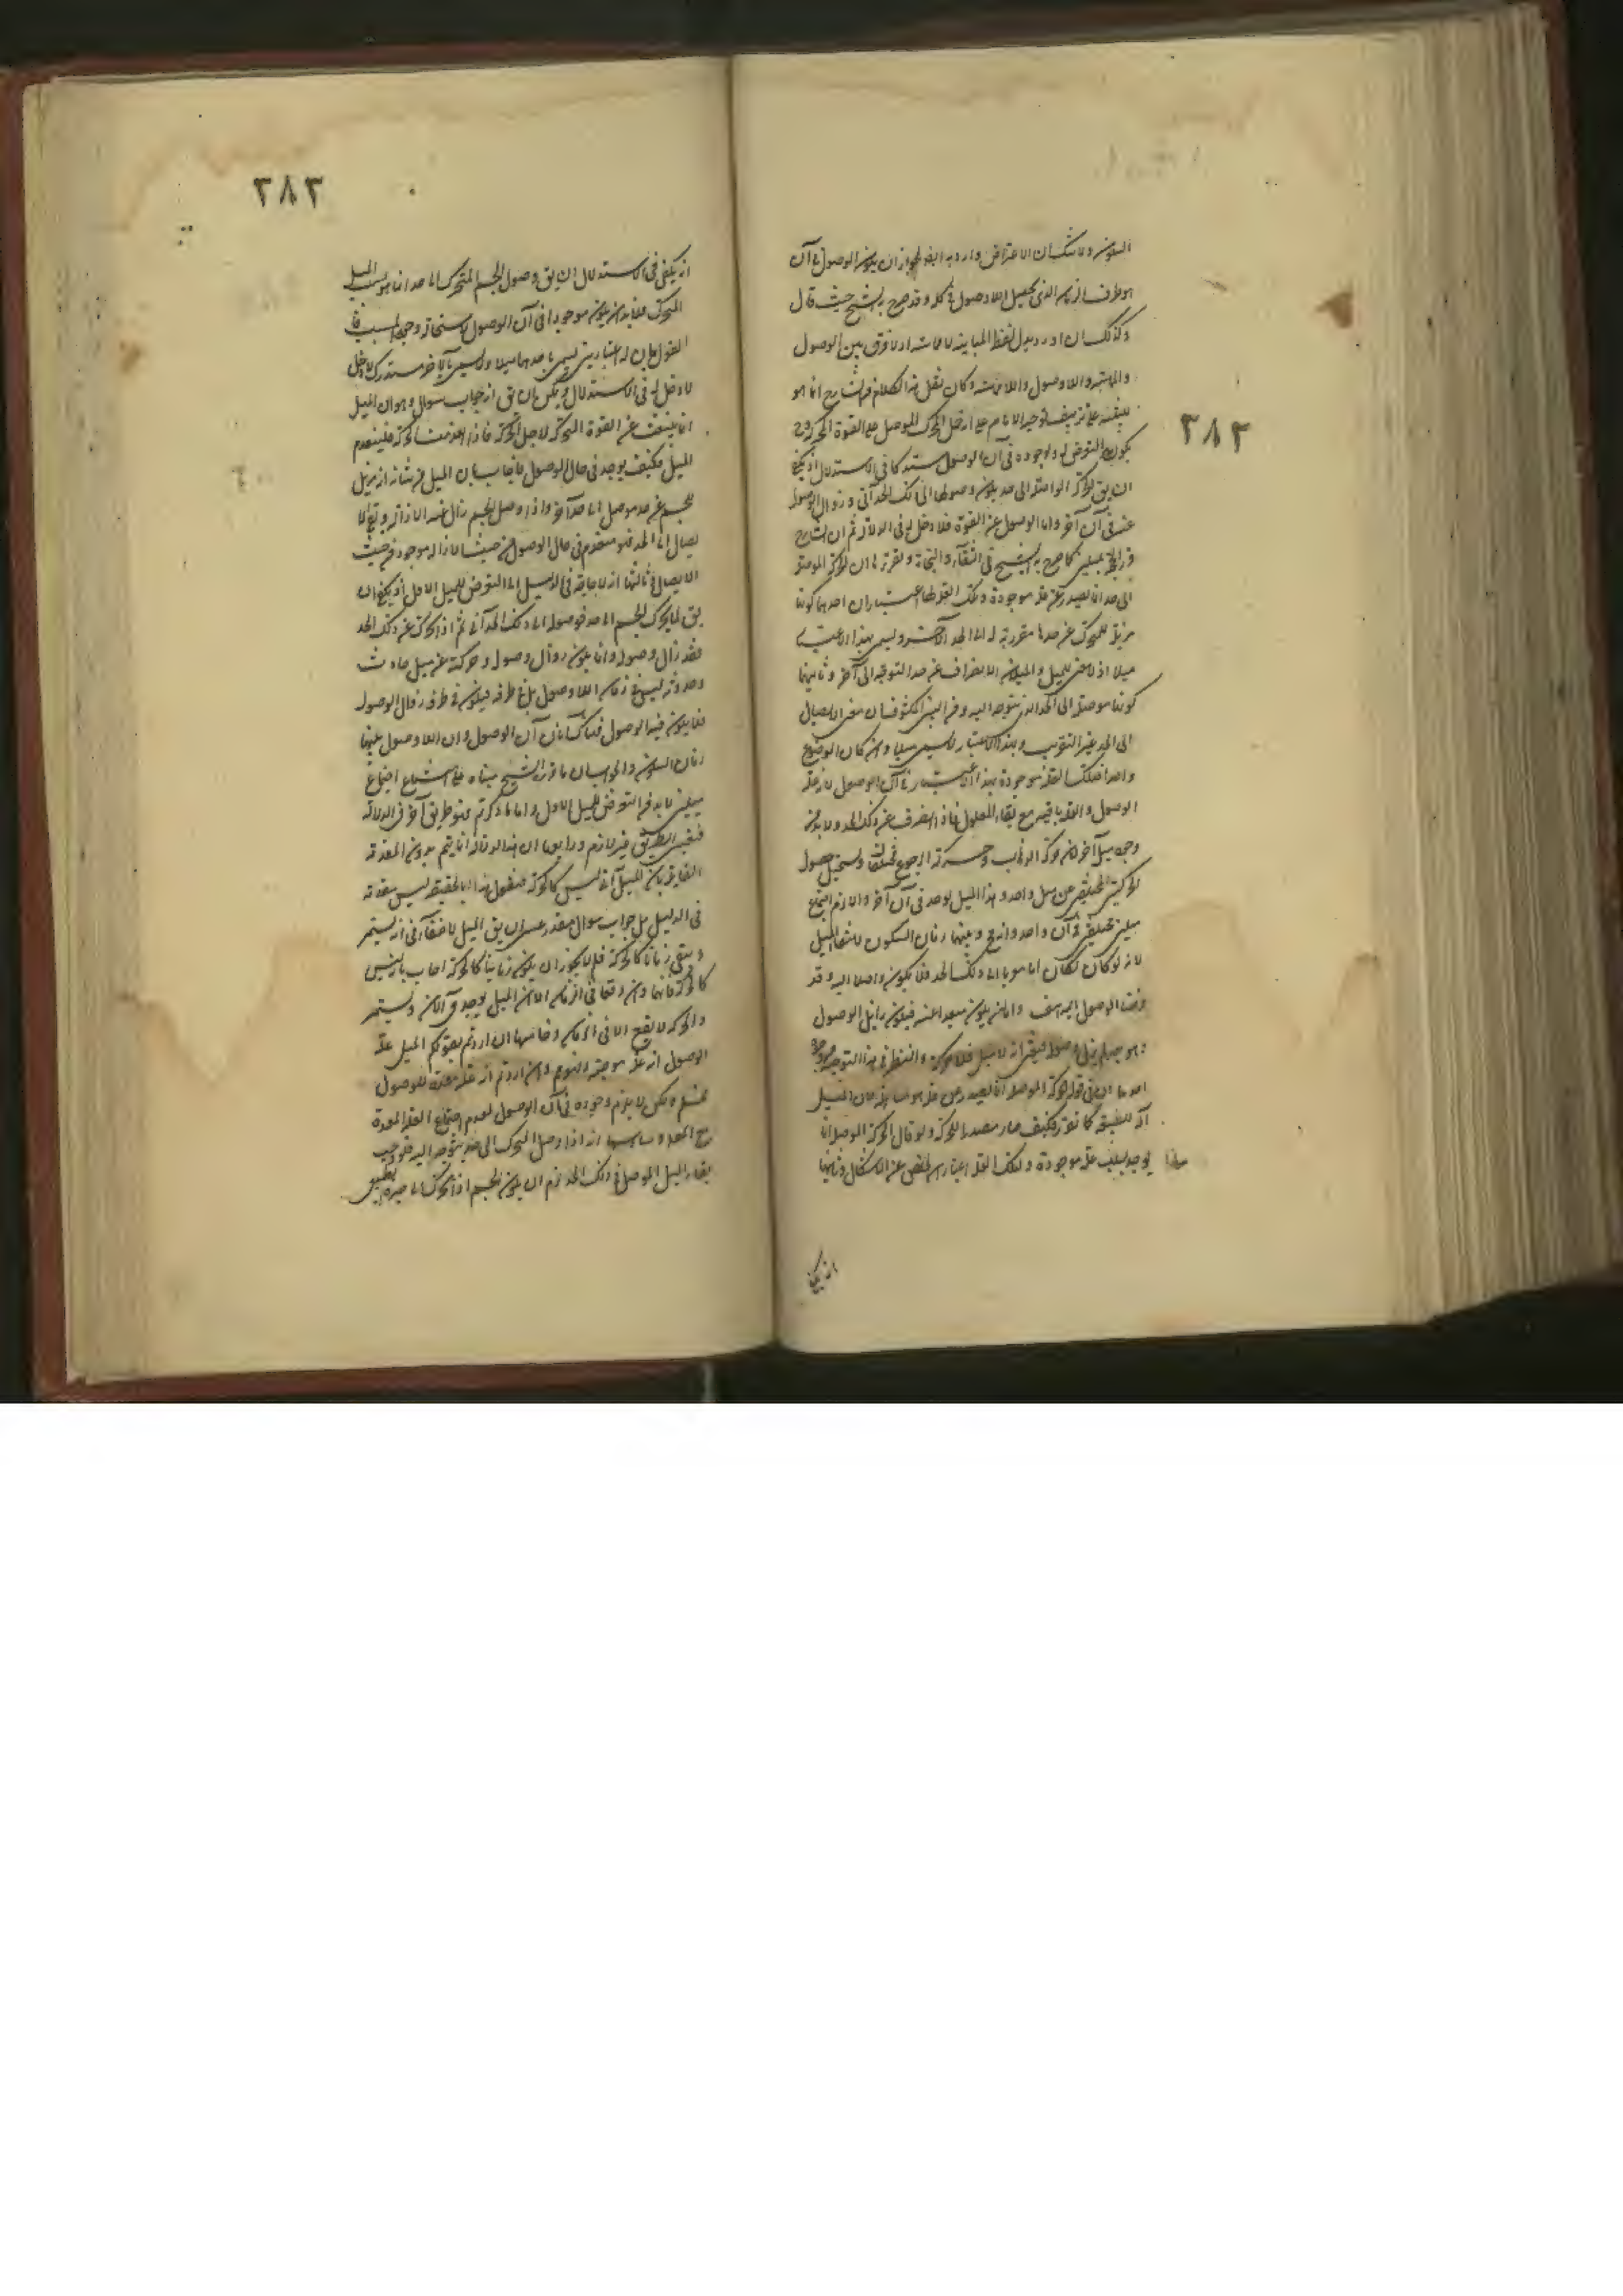 السكون ولا شك ان الاعتراض وارد به ايضا لجواز ان يكون الوصول في آن
هو طرف الزمان الذي يحصل اللاوصول في كله وقد صرح به الشيخ حيث قال
وكذلك ان اورد بدل لفظ المباينة لا مماسة اذ لا فرق بين الوصول
والمماسة واللاوصول واللامماسة وكان نقل هذا الكلام من الشارح انما هو
٣٨٢
يكون التعرض له ولوجوده في آن الوصول مستدركا في الاستدلال اذ يكفي
ان يق الحركة الواصلة الى حد يكون وصولها الى ذلك الحد آني وزوال الوصول
عنه في آن آخر واما الوصول عن القوة فلا دخل له في الدلالة ثم ان الشارح
قرر الحجة بميلين كما صرح به الشيخ في الشفاء والنجاة وتقريره ان الحركة الموصلة
الى حد انما تصدر عن علة موجودة ولتلك العلة اعتباران احدهما كونها
مزيلة للمتحرك عن حد ما مقربة له الى الحد الآخر وليس بهذا الاعتبار
ميلا اذ لا معنى للميل والميلان الا الانصراف عن حد والتوجه الى آخر وثانيهما
كونها موصلة الى الحد الذي يتوجه اليه ومن البين المكشوف ان معنى الايصال
الى الحد غير التقريب وبهذا الاعتبار لا يسمى ميلا وان كان الموضوع
واحدا فتلك العلة موجودة بهذا الاعتبار في آن الوصول لانه علة
الوصول والعلة باقية مع بقاء المعلول فاذا انصرف عن ذلك الحد ولا بد من
وجود ميل آخر لان حركة الذهاب وحركة الرجوع مختلفتان ويستحيل حصول
الحركتين المختلفتين عن ميل واحد وهذا الميل يوجد في آن آخر والا لزم اجتماع
ميلين مختلفين في آن واحد وانه مح وبينهما زمان السكون لانتفاء الميل
لانه لو كان لكان اما مقربا الى ذلك الحد فلا يكون واصلا اليه وقد
فرضنا الوصول اليه هف واما ان يكون مبعدا عنه فيكون زايل الوصول
وهو حينئذ لم يزل وصوله فتعين انه لا ميل فلا حركة والنظر في هذا التوجيه من وجوه
احدها ان في قوله الحركة الموصلة انما تصدر عن علة هو مناقشة فان الميل
آلة للطبيعة كما تقرر فكيف صار مصدرا للحركة ولو قال الحركة الموصلة انما
يوجد بسبب علة موجودة ولتلك العلة اعتباران لتخلص عن الاشكال وثانيها
انه يكفي
٣٨٣
انه يكفي في الاستدلال ان يق وصول الجسم المتحرك الى حد انما هو بسبب الميل
المحرك فلا بد ان يكون موجودا في آن الوصول لاستحالة وجود المسبب بدون
القول بان له اعتبارين يسمى باحدهما ميلا ولا يسمى بالآخر مستدرك لا دخل
لا دخل له في الاستدلال ويمكن ان يق انه جواب سوال وهو ان الميل
انما ينبعث عن القوة المحركة لاجل الحركة فاذا انعدمت الحركة فلينعدم
الميل فكيف يوجد في حال الوصول فاجاب بان الميل من شانه ان يزيل
الجسم عن حد موصل الى حد آخر واذا وصل الجسم زال عنه الازالة وبقي الا
يصال الى الحد فهو منعدم في حال الوصول من حيث الازالة موجود من حيث
الايصال وثالثها انه لا حاجة في الدليل الى التعرض للميل الاول اذ يكفي ان
يق لما تحرك الجسم الى حد فوصوله الى ذلك الحد آني ثم اذا تحرك عن ذلك الحد
فقد زال وصوله وانما يكون زوال وصوله وحركته عن ميل حادث
وحدوثه ليس في زمان اللاوصول بل في طرفه فيكون في طرفه زوال الوصول
فلا يكون فيه الوصول فهناك آنان آن الوصول وآن اللاوصول بينهما
زمان السكون والجواب ان ما قرره الشيخ مبناه على امتناع اجتماع
ميلين لا بد من التعرض للميل الاول واما ما ذكرتم فهو طريق آخر في الدلالة
فتعين الطريق غير لازم ورابعها ان هذه الدلالة انما يتم بدون المقدمة
القايلة بان الميل آني ليس كالحركة فنقول هذا بالحقيقة ليس مقدمة
في الدليل بل جواب سوال مقدر عسى ان يق الميل لا خفاء في انه يستمر
ويبقى زمانا كالحركة فلم لا يجوز ان يكون زمانيا كالحركة اجاب بانه ليس
كالحركة فانها وان وقعا في الزمان الا ان الميل يوجد في الآن ويستمر
والحركة لا يقع الا في الزمان وخامسها ان اردتم بقولكم الميل علة
الوصول انه علة موجبة فهو مم وان اردتم انه علة معدة للوصول
فمسلم ولكن لا يلزم وجوده في آن الوصول لعدم اجتماع العلة المعدة
مع المعلول وسادسها انه اذا وصل المتحرك الى حد يتوجه اليه فلو وجب
بقاء الميل الموصل في ذلك الحد لزم ان يكون الجسم اذا تحرك الى حيزه الطبيعي